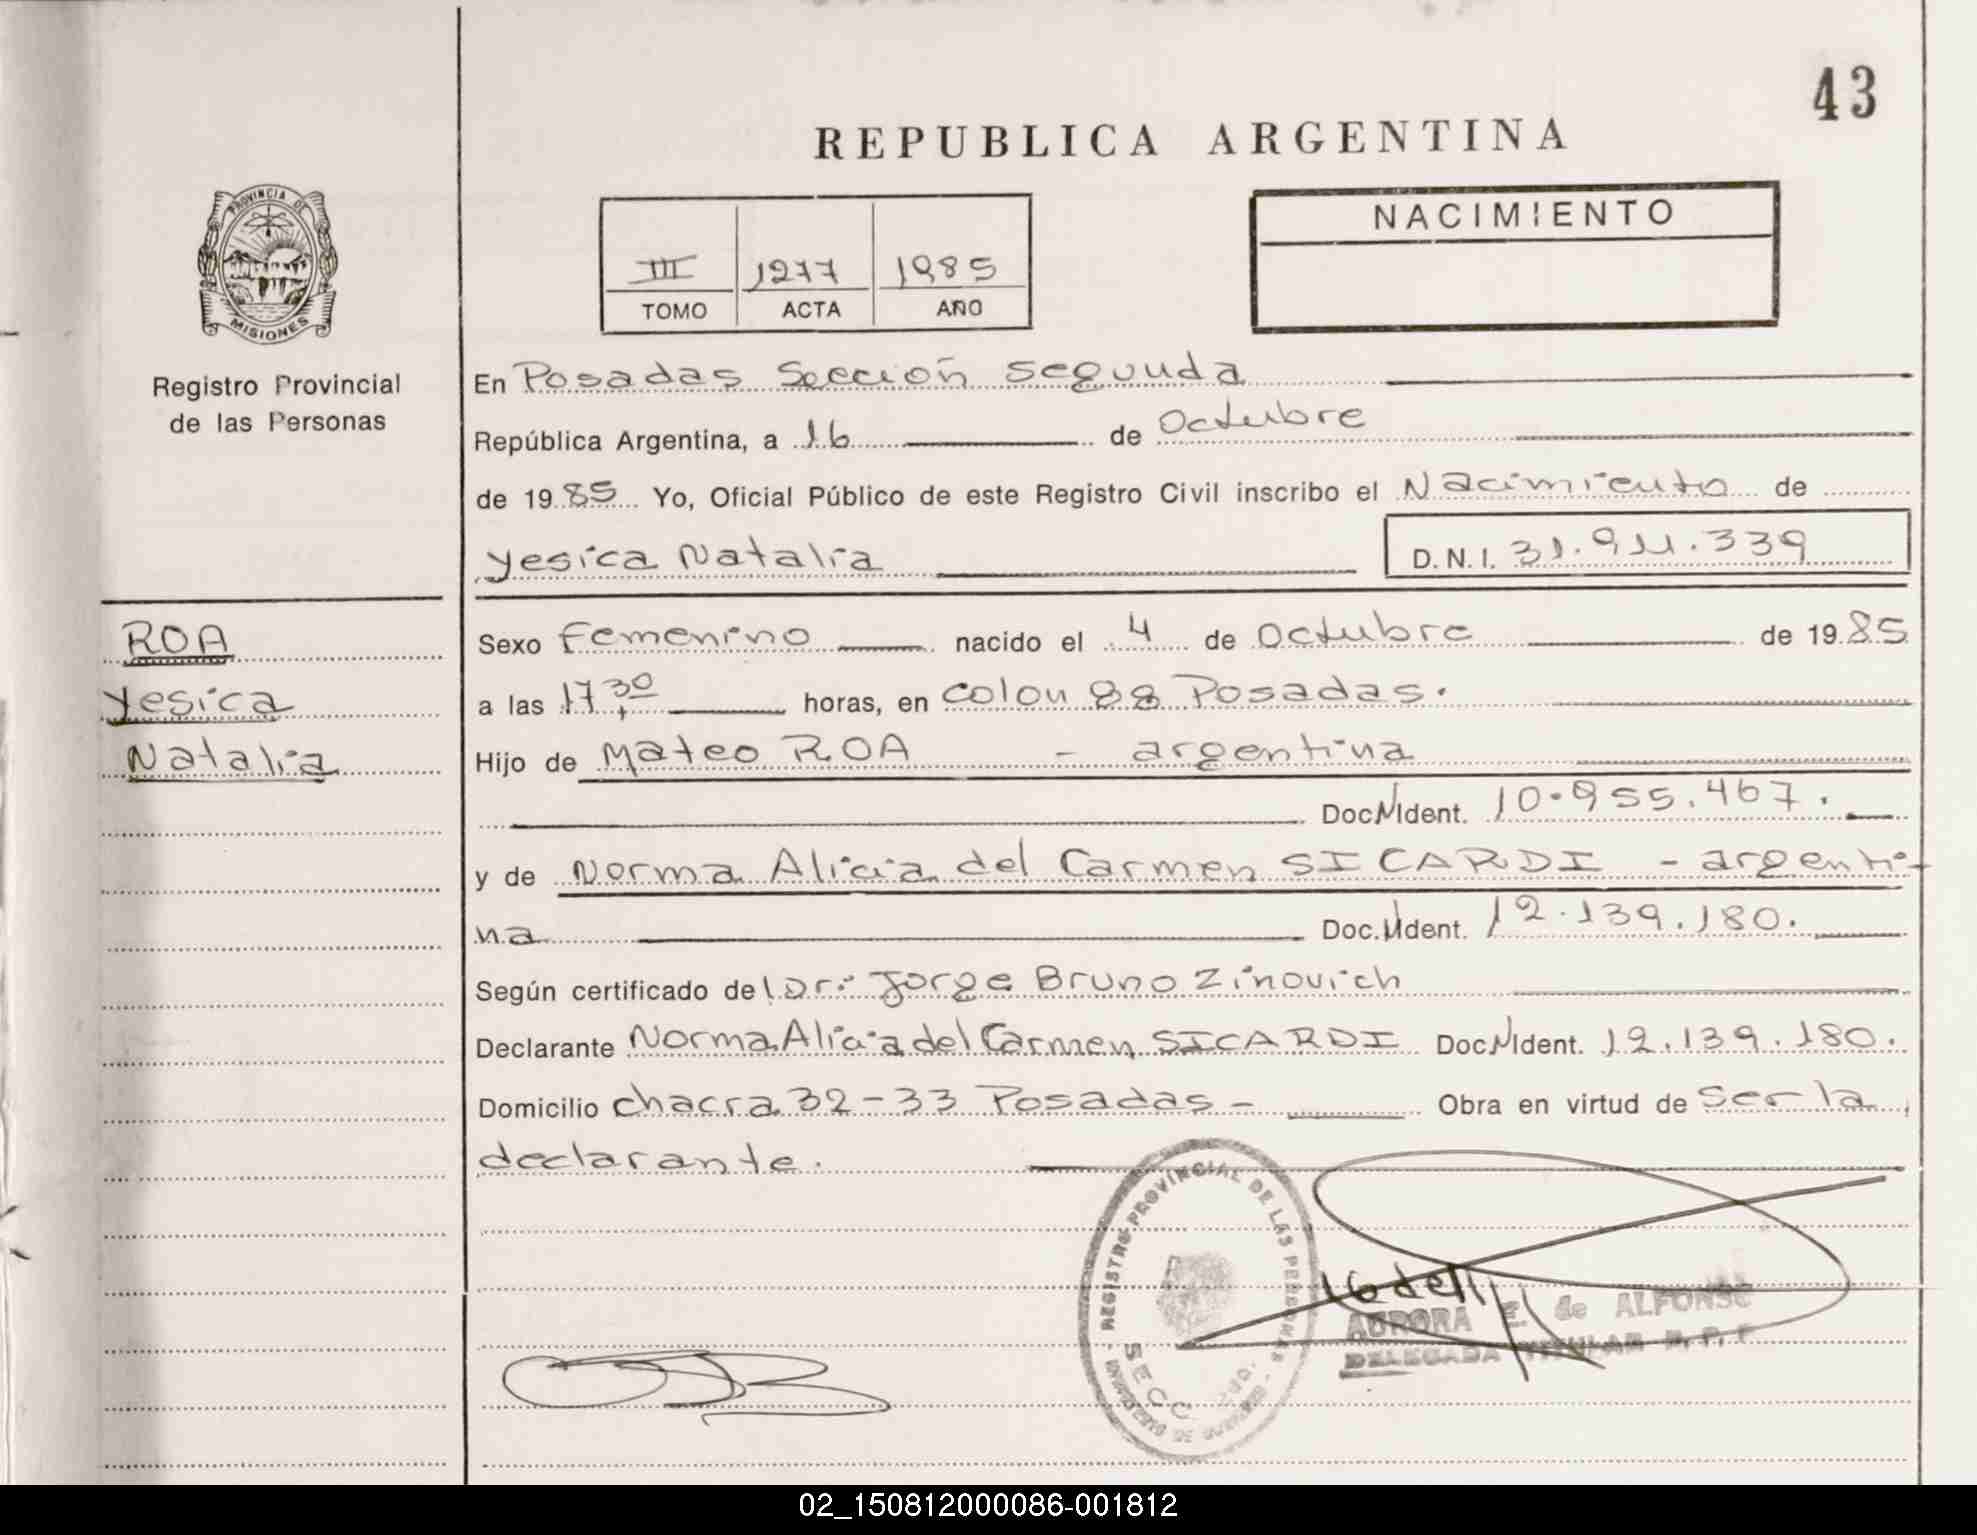 43
REPUBLICA ARGENTINA
PROVINCIA DE
MISIONES
Registro Provincial
de las Personas
III 1277 1985
TOMO ACTA AÑO
NACIMIENTO
En Posadas Sección Segunda
República Argentina, a 16 de Octubre
de 1985 Yo, Oficial Público de este Registro Civil inscribo el Nacimiento de
Yesica Natalia D.N.I. 31.911.339
ROA
Yesica
Natalia
Sexo Femenino nacido el 4 de Octubre de 1985
a las 17,30 horas, en Colon 88 Posadas.
Hijo de Mateo ROA - argentina
Doc.N.Ident. 10.955.467.
y de Norma Alicia del Carmen SICARDI - argenti-
na Doc.N.Ident. 12.139.180.
Según certificado del Dr: Jorge Bruno Zinovich
Declarante Norma Alicia del Carmen SICARDI Doc.N.Ident. 12.139.180.
Domicilio chacra 32-33 Posadas - Obra en virtud de Ser la
declarante.
REGISTRO PROVINCIAL DE LAS PERSONAS
MINISTERIO DE GOBIERNO
SECC
AURORA E. de ALFONSO
DELEGADA TITULAR R. P. P.
02_150812000086-001812